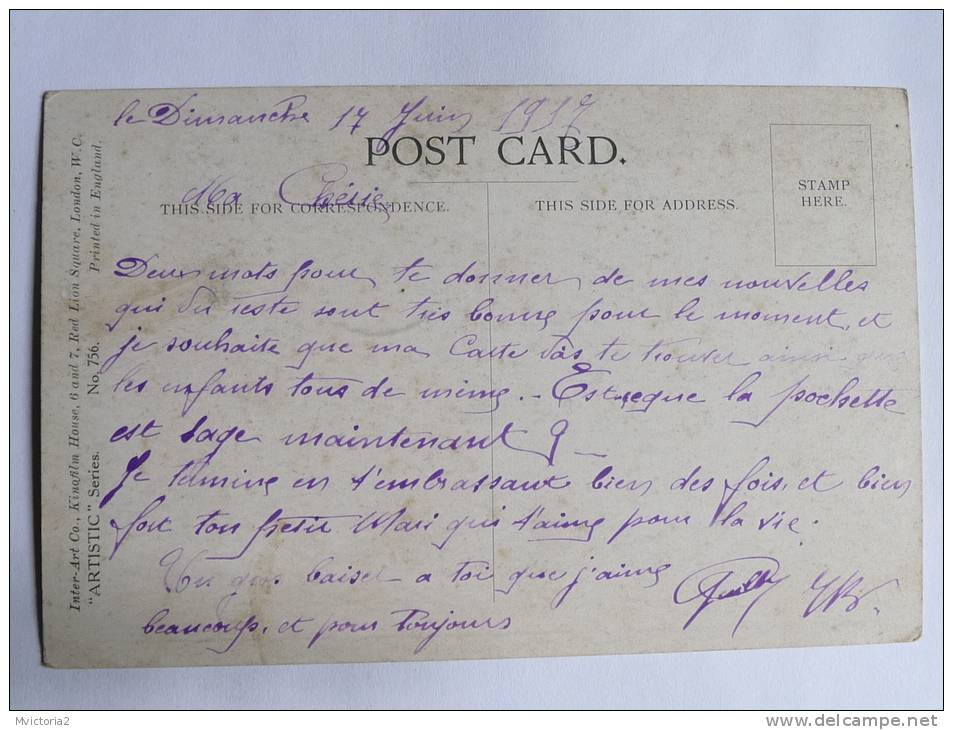 le Dimanche 17 Juin 1917
POST CARD.
STAMP
HERE.
Ma Chérie
THIS SIDE FOR CORRESPONDENCE.
THIS SIDE FOR ADDRESS.
Deux mots pour te donner de mes nouvelles
qui du reste sont très bonne pour le moment, et
je souhaite que ma Carte vas te trouver ainsi que
les enfants tous de même. - Est ce que la pochette
est sage maintenant ?
Je termine en t'embrassant bien des fois, et bien
fort ton petit Mari qui t'aime pour la vie.
Un gros baiser a toi que j'aime
beaucoup, et pour toujours
Inter-Art Co., Kinafilm House, 6 and 7, Red Lion Square, London, W.C.
"ARTISTIC" Series. No. 756. Printed in England.
Mvictoria2
www.delcampe.net